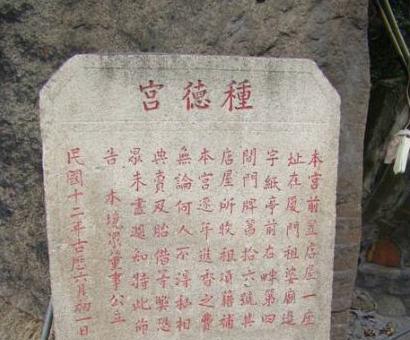 種德宮
本宮前置店屋一座
址在厦門祖婆廟邊
字紙亭前右畔第四
間門牌舊拾六號其
店屋所收租項藉補
本宮逐年進香之費
無論何人不得私相
典賣及貽借等獘恐
衆未盡週知特此佈
告 本境衆董事公立
民國十二年古厯六月初一日